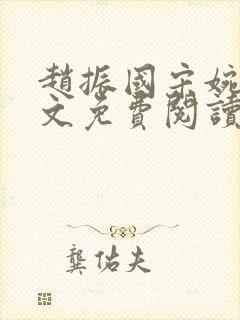 趙振國宋婉
文免費閱讀
龔佑夫